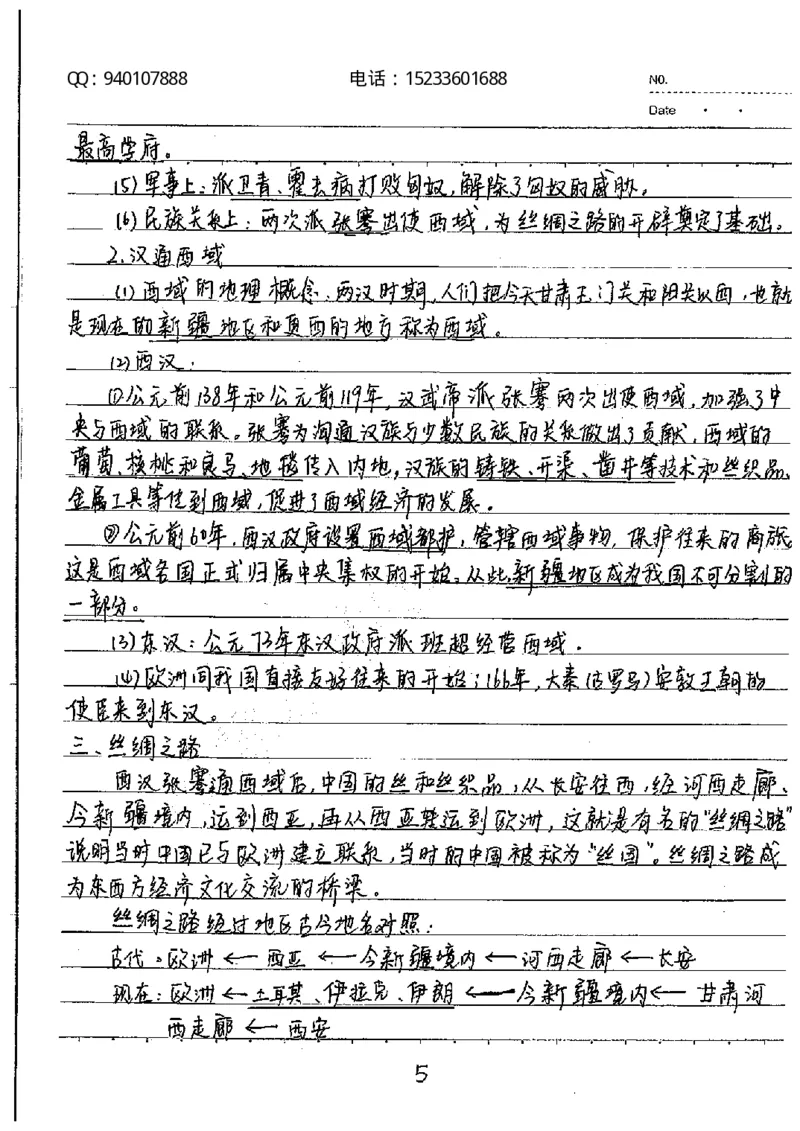 QQ：940107888 电话：15233601688 NO.
Date
最高学府。
(5)军事上：派卫青、霍去病打败匈奴，解除了匈奴的威胁。
(6)民族关系上：两次派张骞出使西域，为丝绸之路的开辟奠定了基础。
2.汉通西域
(1)西域的地理概念：两汉时期，人们把今天甘肃玉门关和阳关以西，也就
是现在的新疆地区和更西的地方称为西域。
(2)西汉：
①公元前138年和公元前119年，汉武帝派张骞两次出使西域，加强了中
央与西域的联系。张骞为沟通汉族与少数民族的关系做出了贡献，西域的
葡萄、核桃和良马、地毯传入内地，汉族的铸铁、开渠、凿井等技术和丝织品、
金属工具等传到西域，促进了西域经济的发展。
②公元前60年，西汉政府设置西域都护，管辖西域事物，保护往来的商旅，
这是西域各国正式归属中央集权的开始。从此，新疆地区成为我国不可分割的
一部分。
(3)东汉：公元73年东汉政府派班超经营西域。
(4)欧洲同我国直接友好往来的开始；166年，大秦(古罗马)安敦王朝的
使臣来到东汉。
三、丝绸之路
西汉张骞通西域后，中国的丝和丝织品，从长安往西，经河西走廊、
今新疆境内，运到西亚，再从西亚转运到欧洲，这就是有名的“丝绸之路”
说明当时中国已与欧洲建立联系，当时的中国被称为“丝国”。丝绸之路成
为东西方经济文化交流的桥梁。
丝绸之路经过地区古今地名对照：
古代：欧洲←西亚←今新疆境内←河西走廊←长安
现在：欧洲←土耳其、伊拉克、伊朗←今新疆境内←甘肃河
西走廊←西安
5